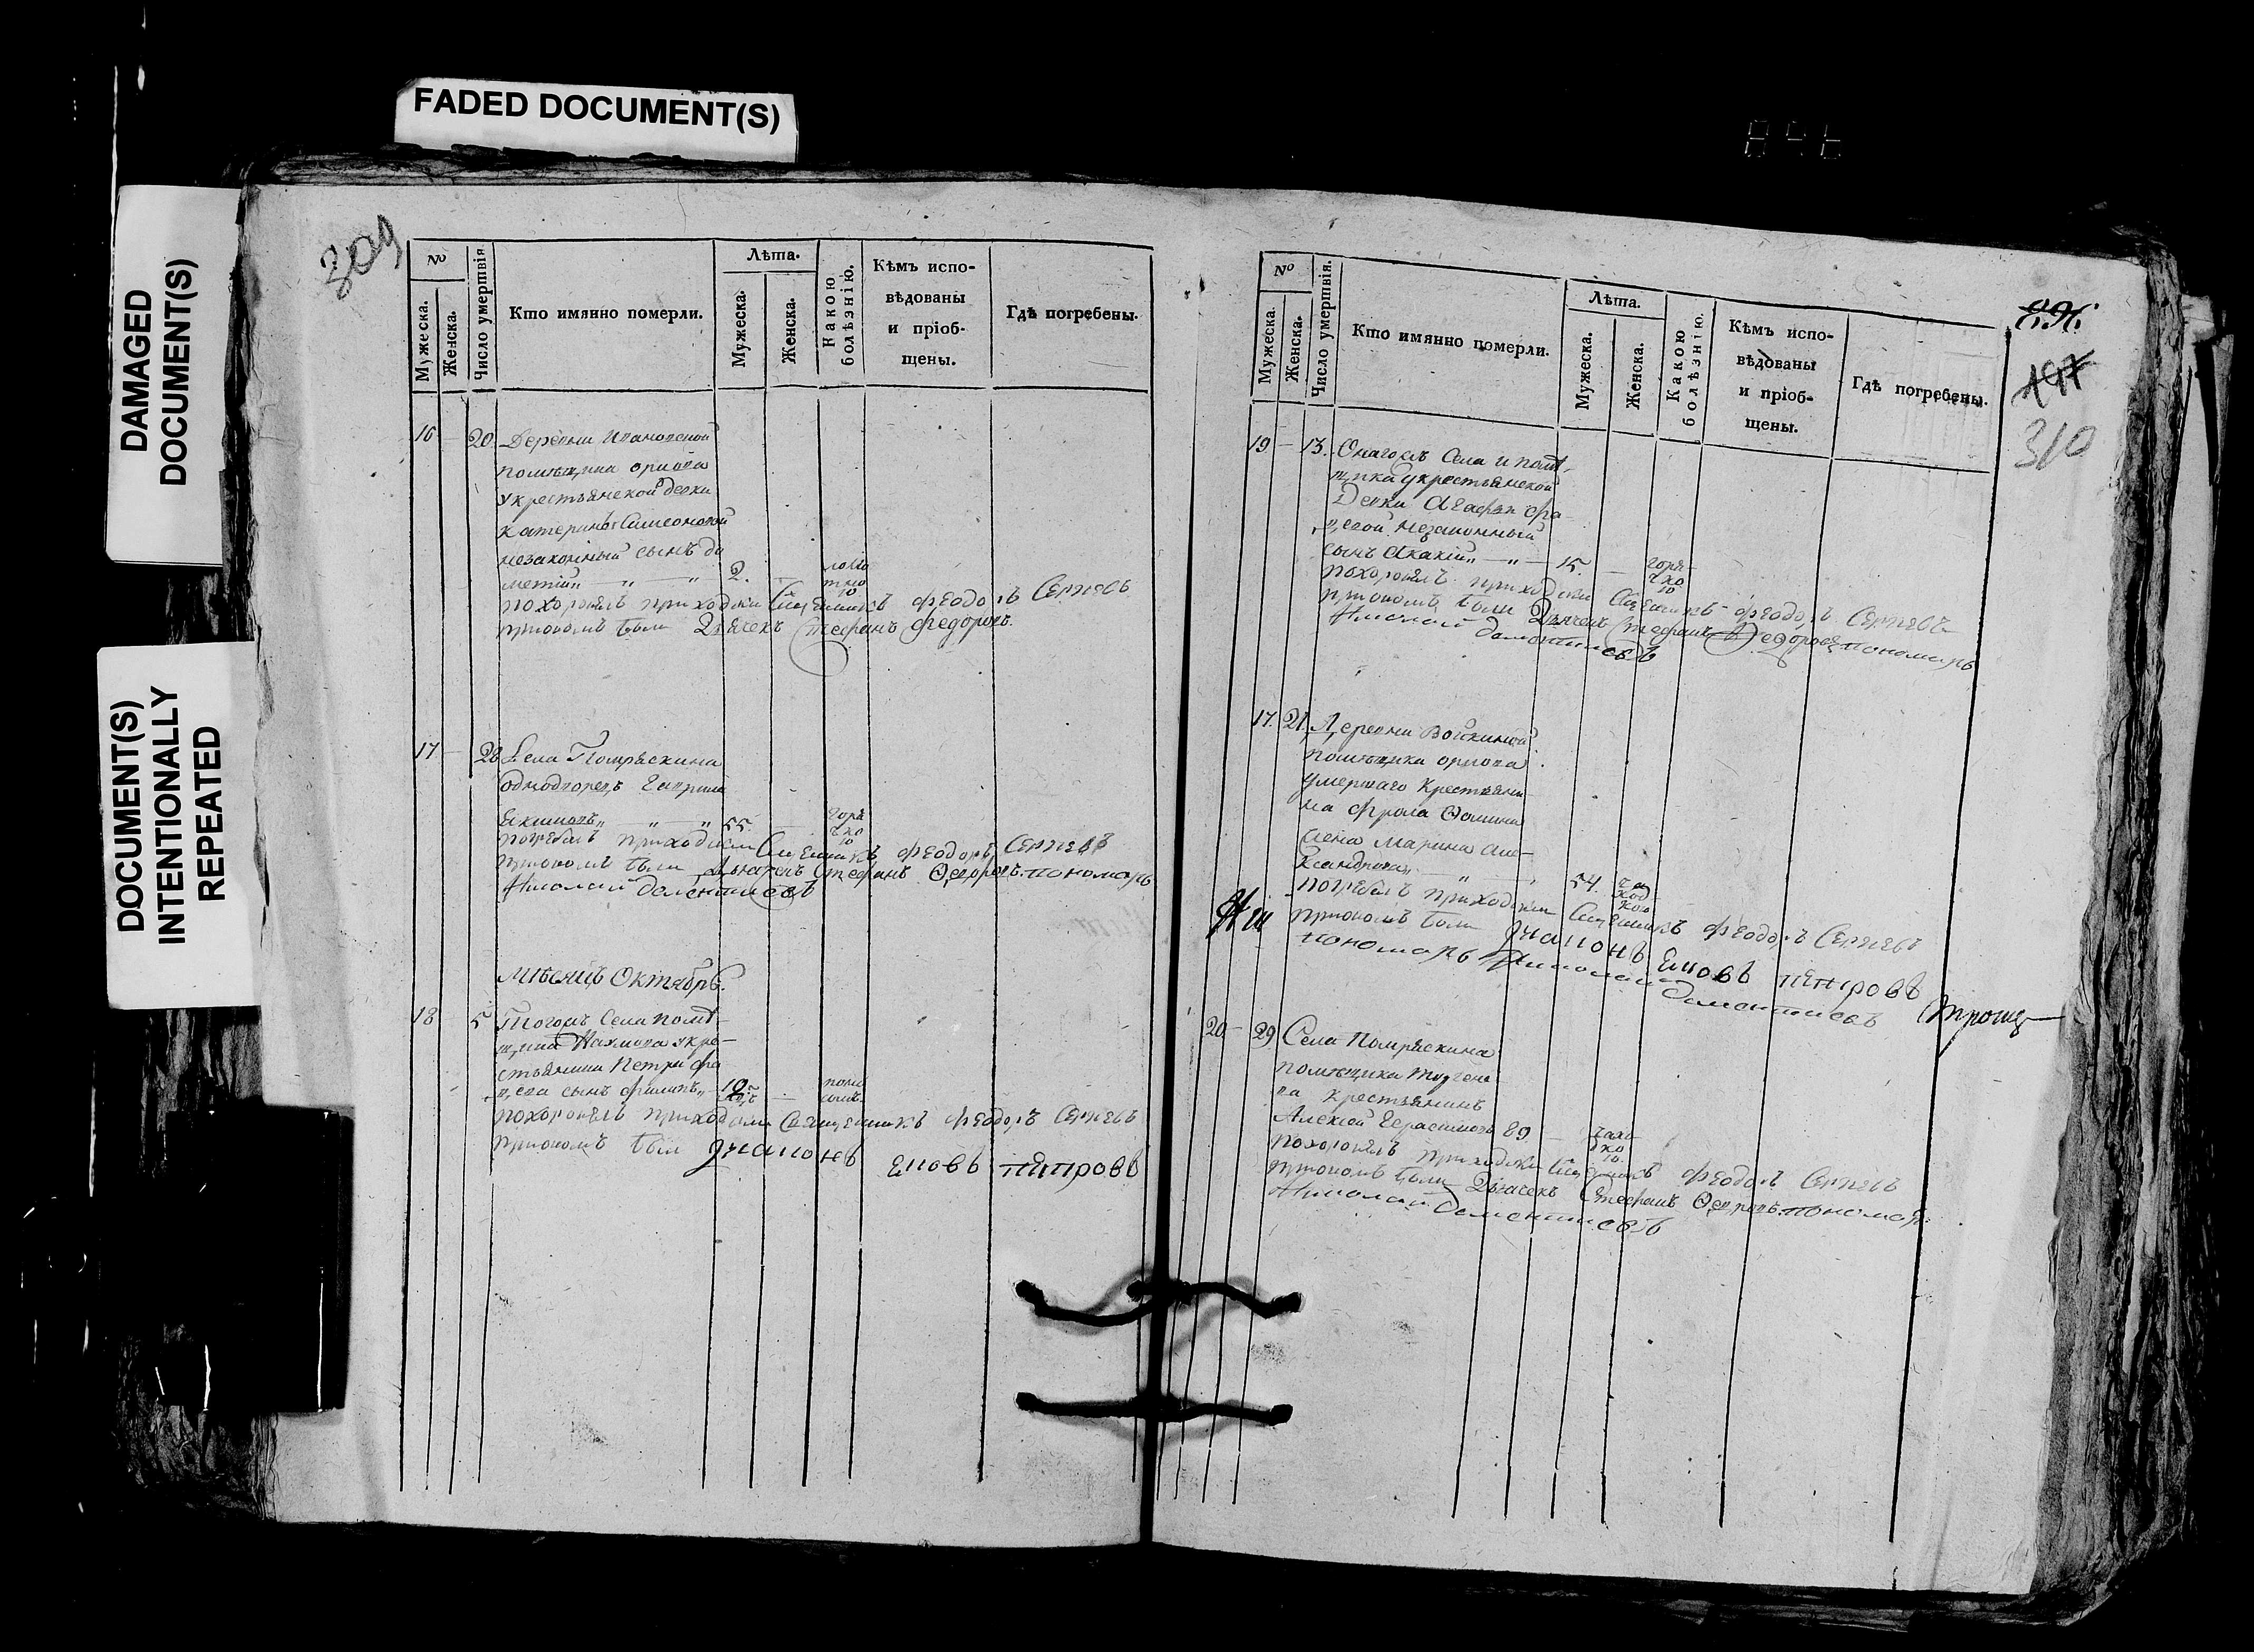 FADED DOCUMENT(S)
DAMAGED
DOCUMENT(S)
DOCUMENT(S)
INTENTIONALLY
REPEATED
309
№
Мужеска.
Женска.
Число умертвія
Кто имянно померли.
Лѣта.
Мужеска.
Женска.
Какою
болѣзнію.
Кѣмъ испо-
вѣдованы
и пріоб-
щены.
Гдѣ погребены.
16 — 20. Деревни Ивановской
помѣщика орлова
укрестьянской девки
катерины Симеоновой
незаконный сынъ ди
митій „ — „ — „ 2.
похоронялъ приходски Священникъ Феодоръ Сергѣевъ
притомъ были Дьячекъ Стефанъ Федоровъ.
17 — 28 Села Помряскина
однодворецъ Гаврила
Екимовъ „ — „ — „ 55. — горя
чко
ю
погребалъ приходски Священникъ Феодоръ Сергѣевъ
притомъ были Дьячекъ Стефанъ Ѳедоровъ пономарь
Николай дементиевъ
Мѣсяцъ Октябрь.
18 — 5. Тогожъ Села помѣ-
щика укре-
стьянина Петра
сынъ Филипъ „ 10
похоронялъ приходски Священникъ Феодоръ Сергѣевъ
притомъ были Диаконъ Еповъ Пѣтровъ
№
Мужеска.
Женска.
Число умертвія.
Кто имянно померли.
Лѣта.
Мужеска.
Женска.
Какою
болѣзнію.
Кѣмъ испо-
вѣдованы
и пріоб-
щены.
Гдѣ погребены.
197
310
19 — 13. Онагожъ Села и помѣ-
щика укрестьянской
Девки Агафьи
незаконный
сынъ Акакій „ — „ — 15. — горя-
чко
ю
похоронялъ приходски Священникъ Феодоръ Сергѣевъ
притомъ были Дьячекъ Стефанъ Федоровъ пономарь
Николай дементиевъ
17. 21. Деревни Войкиной
помѣщика орлова
умершаго Крестьяни-
на Фрола Ѳомина
жена Марина але-
ксандрова „ — „ 54.
погребалъ приходски Священникъ Феодоръ Сергѣевъ
притомъ были Диаконъ Еповъ Пѣтровъ
пономарь Николай дементиевъ
20 — 29. Села Помряскина
помѣщика Тургене-
ва крестьянинъ
Алексѣй Герасимовъ 89. —
похоронялъ приходски Священникъ Феодоръ Сергѣевъ
притомъ были Дьячекъ Стефанъ Ѳедоровъ пономарь
Николай дементиевъ